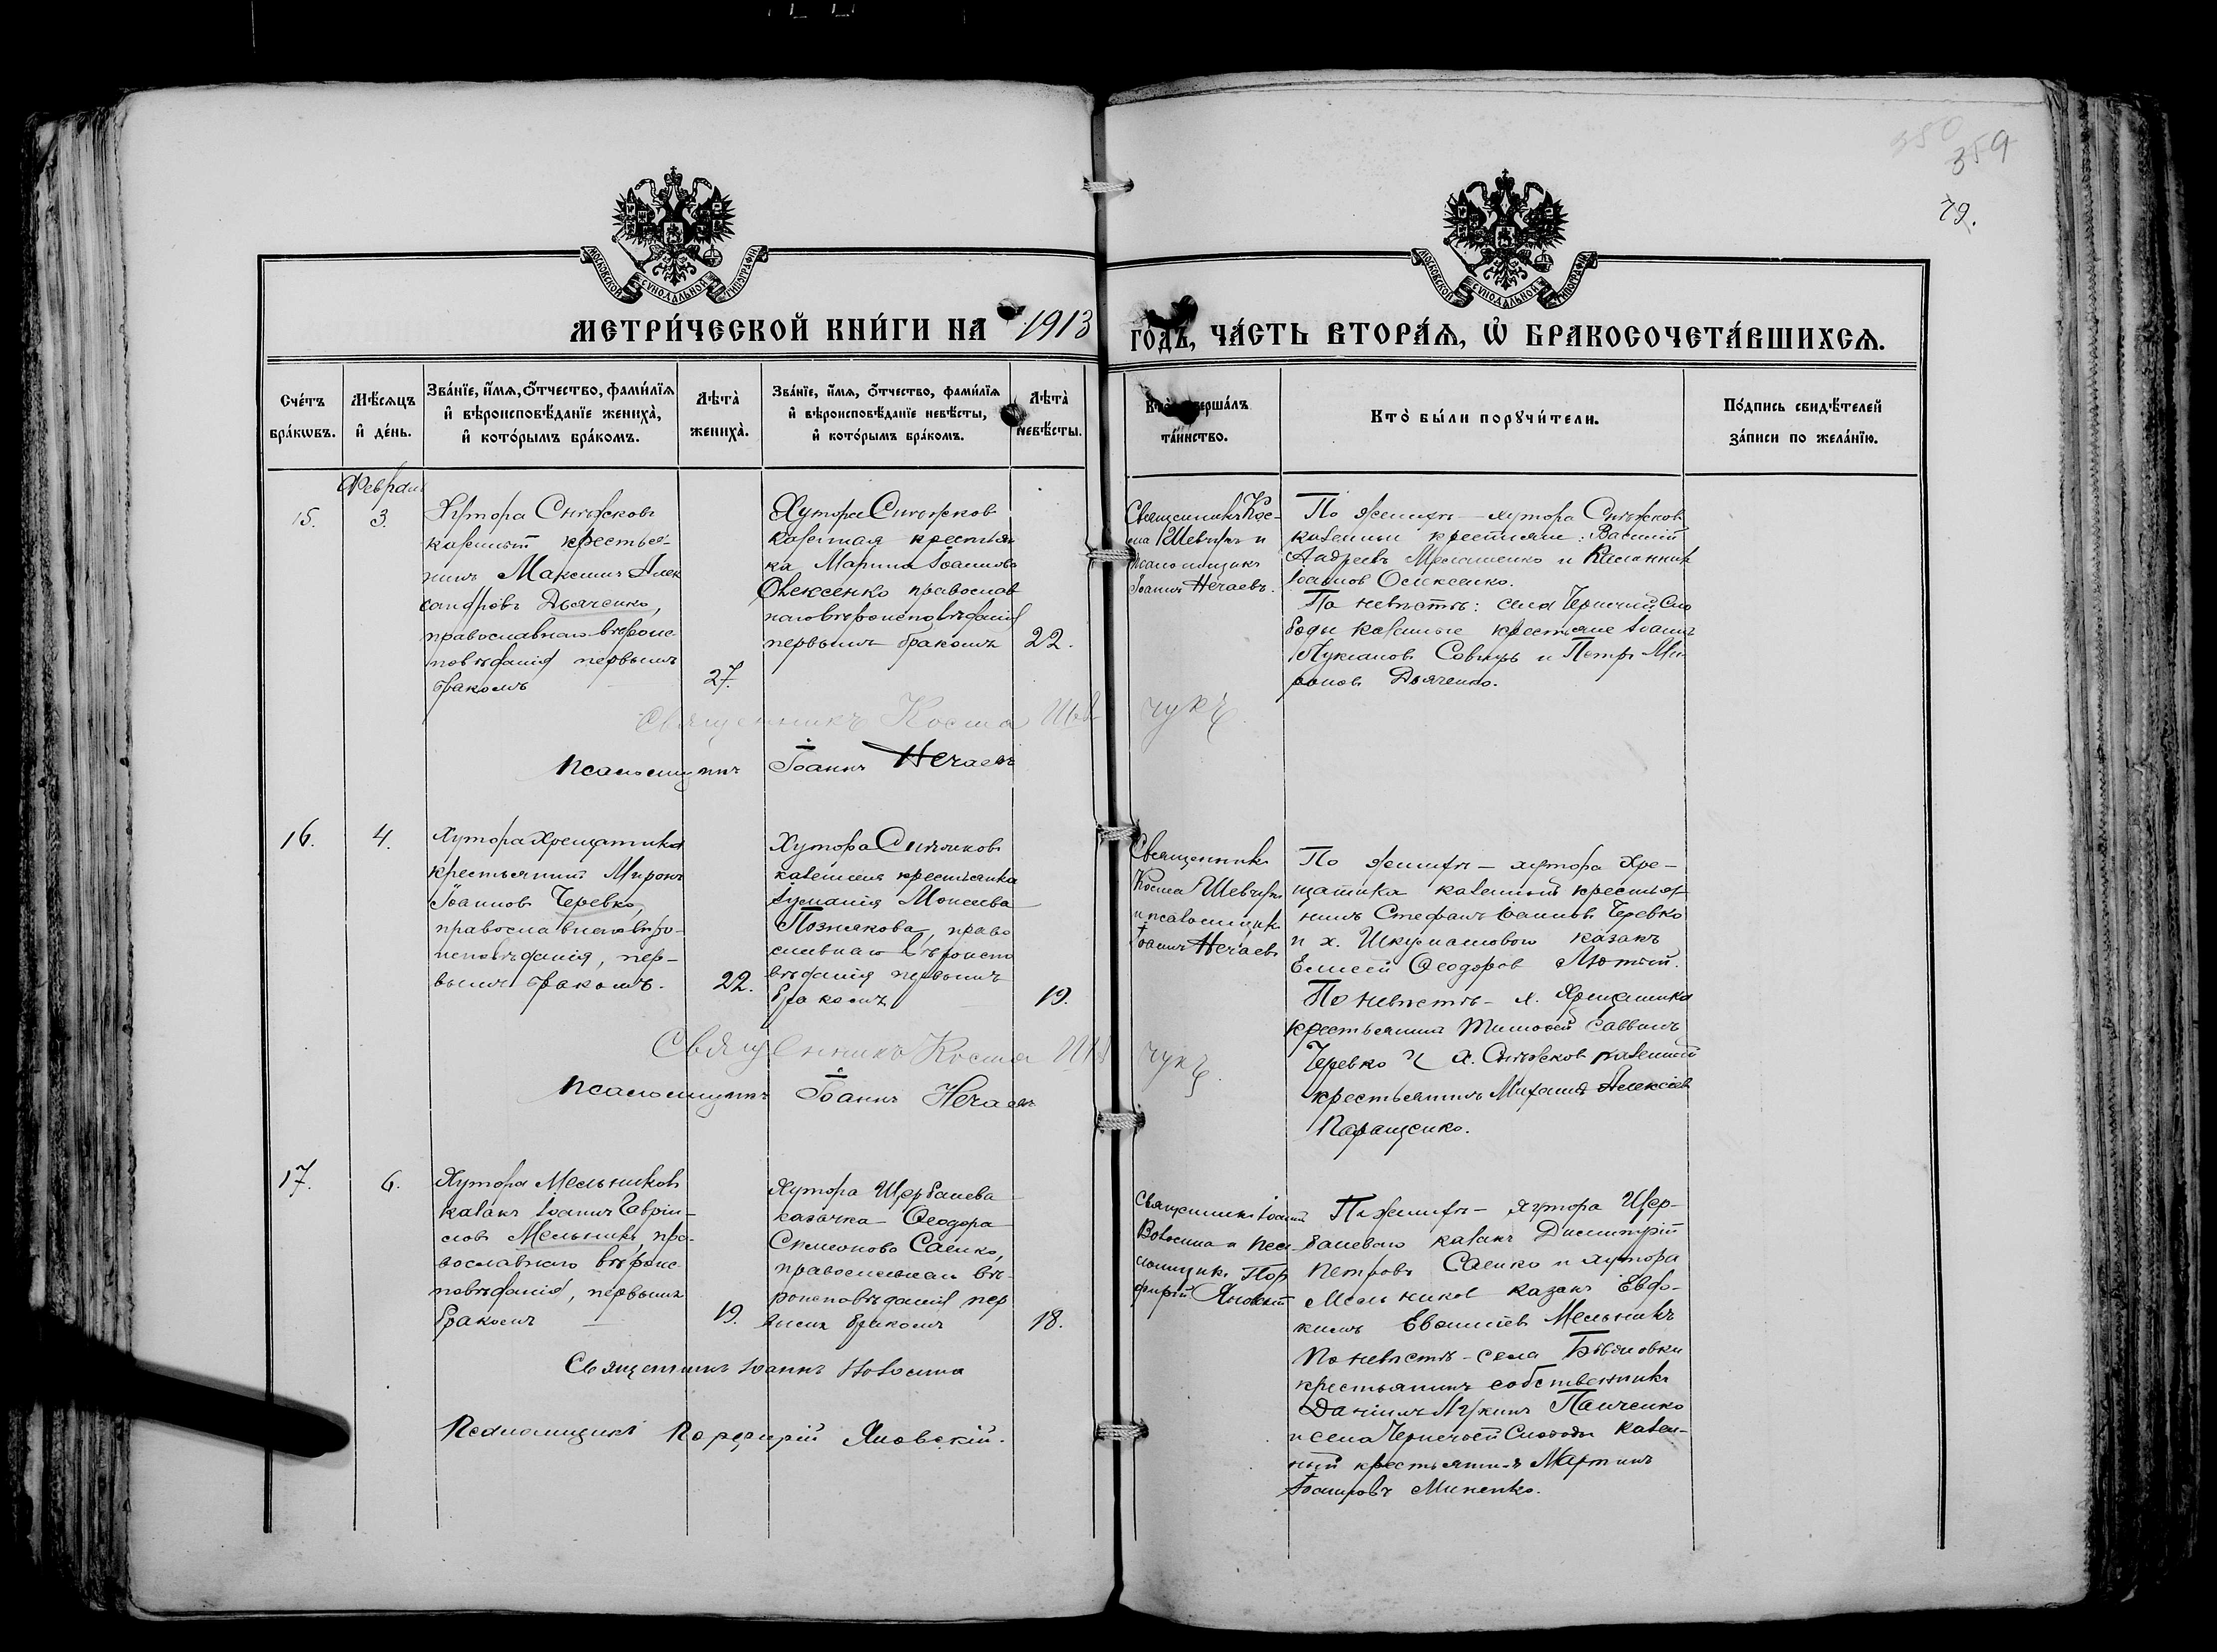 359
72.
МОСКОВСКОЙ СУНОДАЛЬНОЙ ТИПОГРАФІИ
МОСКОВСКОЙ СУНОДАЛЬНОЙ ТИПОГРАФІИ
МЕТРИ́ЧЕСКОЙ КНИ́ГИ НА 1913 ГОДЪ, ЧА́СТЬ ВТОРА́Ѧ, Ѡ БРАКОСОЧЕТА́ВШИХСѦ.
Сче́тъ
бра́кѡвъ.
Мѣ́сѧцъ
и де́нь.
Зва́нїе, и́мѧ, ѻ́тчество, фами́лїѧ
и вѣроисповѣ́данїе жениха̀,
и кото́рымъ бра́комъ.
Лѣта̀
жениха̀.
Зва́нїе, и́мѧ, ѻ́тчество, фами́лїѧ
и вѣроисповѣ́данїе невѣ́сты,
и кото́рымъ бра́комъ.
Лѣта̀
невѣ́сты.
Кто̀
та́инство.
Кто̀ бы́ли порꙋчи́тели.
По́дпись свидѣ́телей
за́писи по жела́нїю.
Февраль
15.
3.
Хутора
казенный крестья-
нинъ Максимъ Алек
сандровъ Дьяченко,
православнаго вѣроис
повѣданія первымъ
бракомъ
27.
Хутора
казенная крестьян
ка Марина Іоаннова
Олексенко православ
наго вѣроисповѣданія
первымъ бракомъ
22.
Священникъ Кос-
ма Шевчукъ и
псаломщикъ
Іоаннъ Нечаевъ.
По женихѣ – хутора
казенные крестьяне: Василій
Андреевъ и
Іоаннов Олексенко.
По невѣстѣ: села Чернечей Сло
боды казенные крестьяне Іоаннъ
Лукіановъ и Петръ Ми-
роновъ Дьяченко.
Священникъ Косма Шевчукъ
Псаломщикъ Іоаннъ Нечаевъ
16.
4.
Хутора Хрещатика
крестьянинъ Миронъ
Іоанновъ Черевко,
православнаго вѣро-
исповѣданія, пер-
вымъ бракомъ.
22.
Хутора
казенная крестьянка
Моисеева
Познякова, право
славнаго вѣроиспо
вѣданія первымъ
бракомъ
19.
Священникъ
Косма Шевчукъ
и псаломщикъ
Іоаннъ Нечаевъ
По женихѣ – хутора Хре-
щатика казенный крестья-
нинъ Стефанъ Іоанновъ Черевко
и х. казакъ
Елисей Ѳеодоровъ Лютый.
По невѣстѣ – х. Хрещатика
крестьянинъ Тимофей Саввинъ
Черевко и х. казенный
крестьянинъ Михаилъ Алексіев
Паращенко.
Священникъ Косма Шевчукъ
Псаломщикъ Іоаннъ Нечаевъ
17.
6.
Хутора Мельниковъ
казакъ Іоаннъ Гаврiи-
ловъ Мельникъ, пра-
вославнаго вѣроис
повѣданія, первымъ
бракомъ
19.
Хутора Щербанева
казачка – Ѳеодора
Симеонова Саенко,
православнаго вѣ-
роисповѣданія пер
вымъ бракомъ
18.
Священникъ Іоаннъ
и псал-
омщикъ Пор
фирій Яновскій
По женихѣ – хутора Щер-
баневаго казакъ Димитрій
Петровъ Саенко и хутора
Мельниковъ казакъ Евдо-
кимъ Мельникъ
По невѣстѣ – села
крестьянинъ собственникъ
Даніилъ Лукинъ Панченко
и села Чернечьей Слободы казен-
ный крестьянинъ Мартинъ
Миненко.
Священникъ Іоаннъ
Псаломщикъ Порфирій Яновскій.